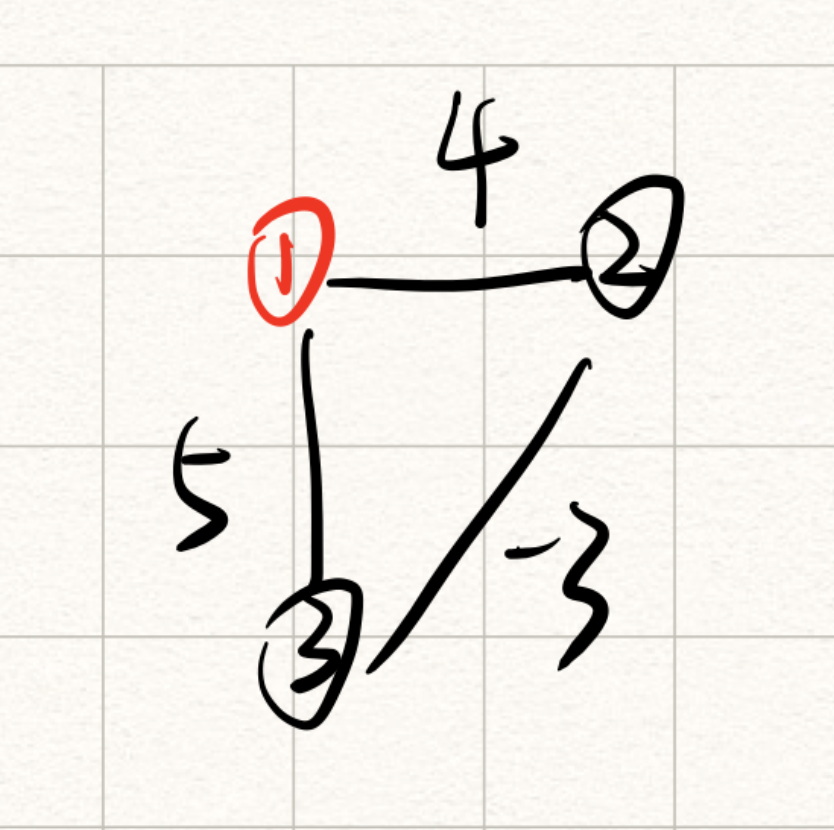 4
①
②
5
-3
③